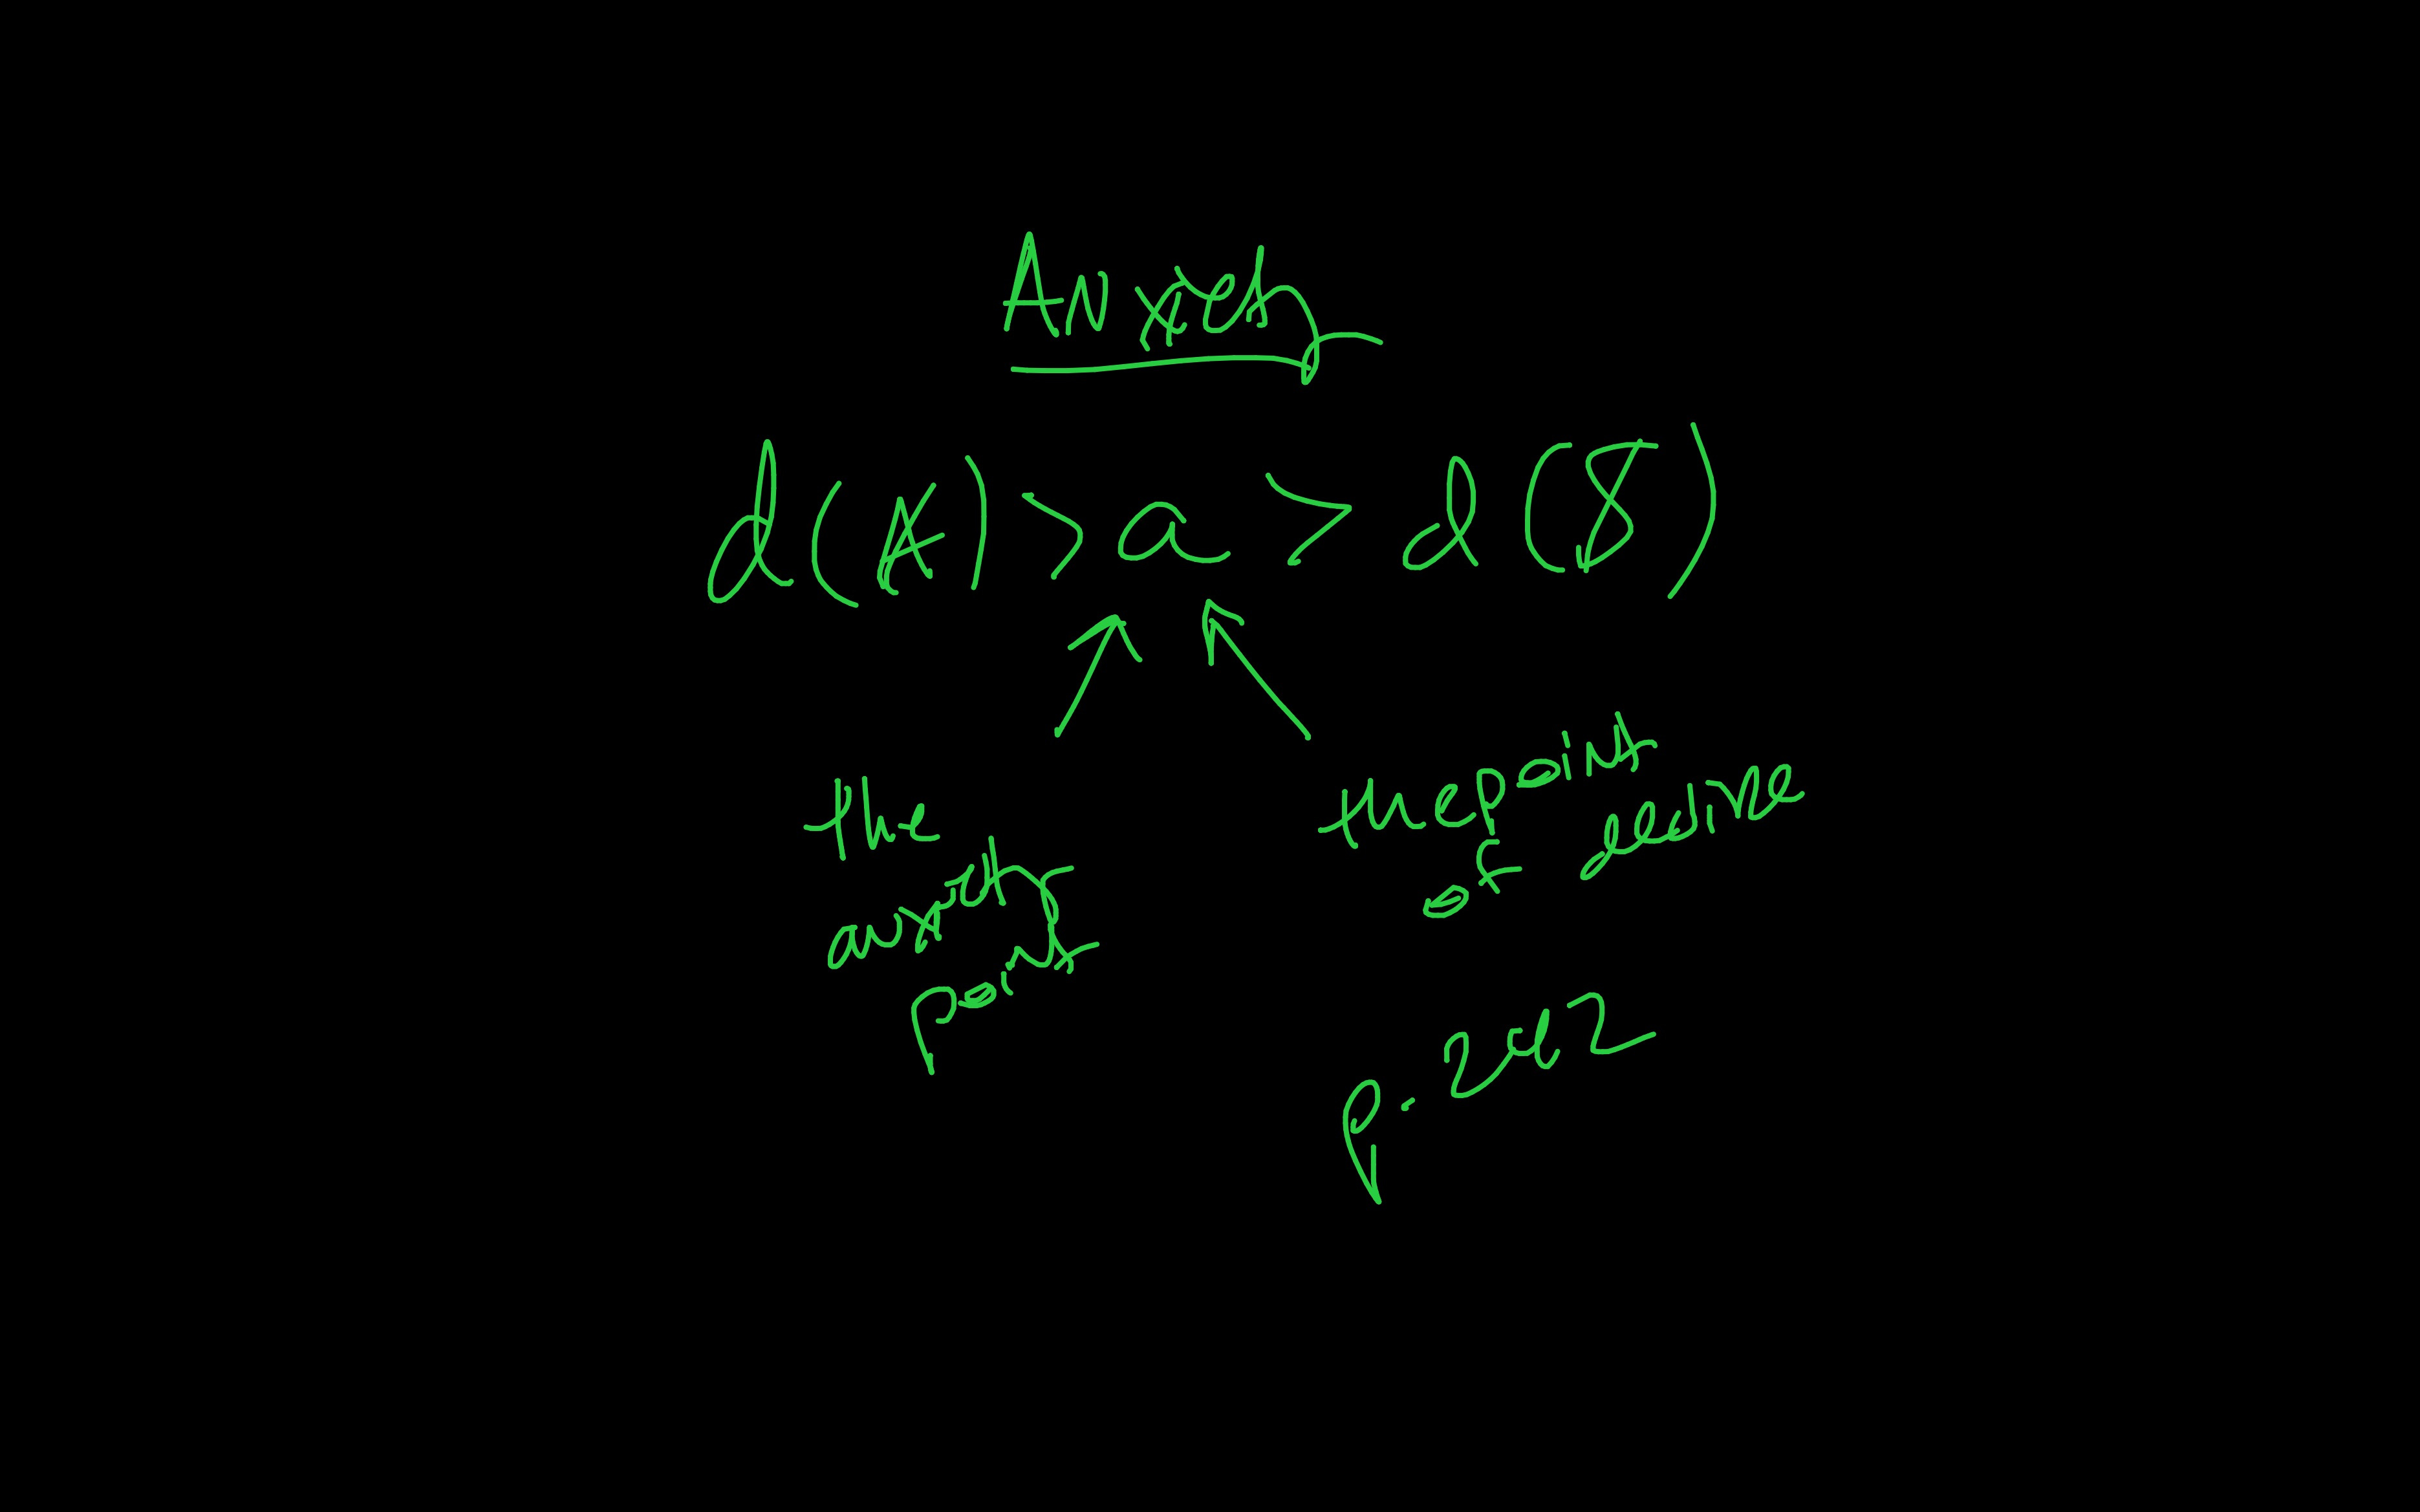 Anxiety
d(A̸) > a > d($)
the
anxiety
point
the point
of desire
p. 242